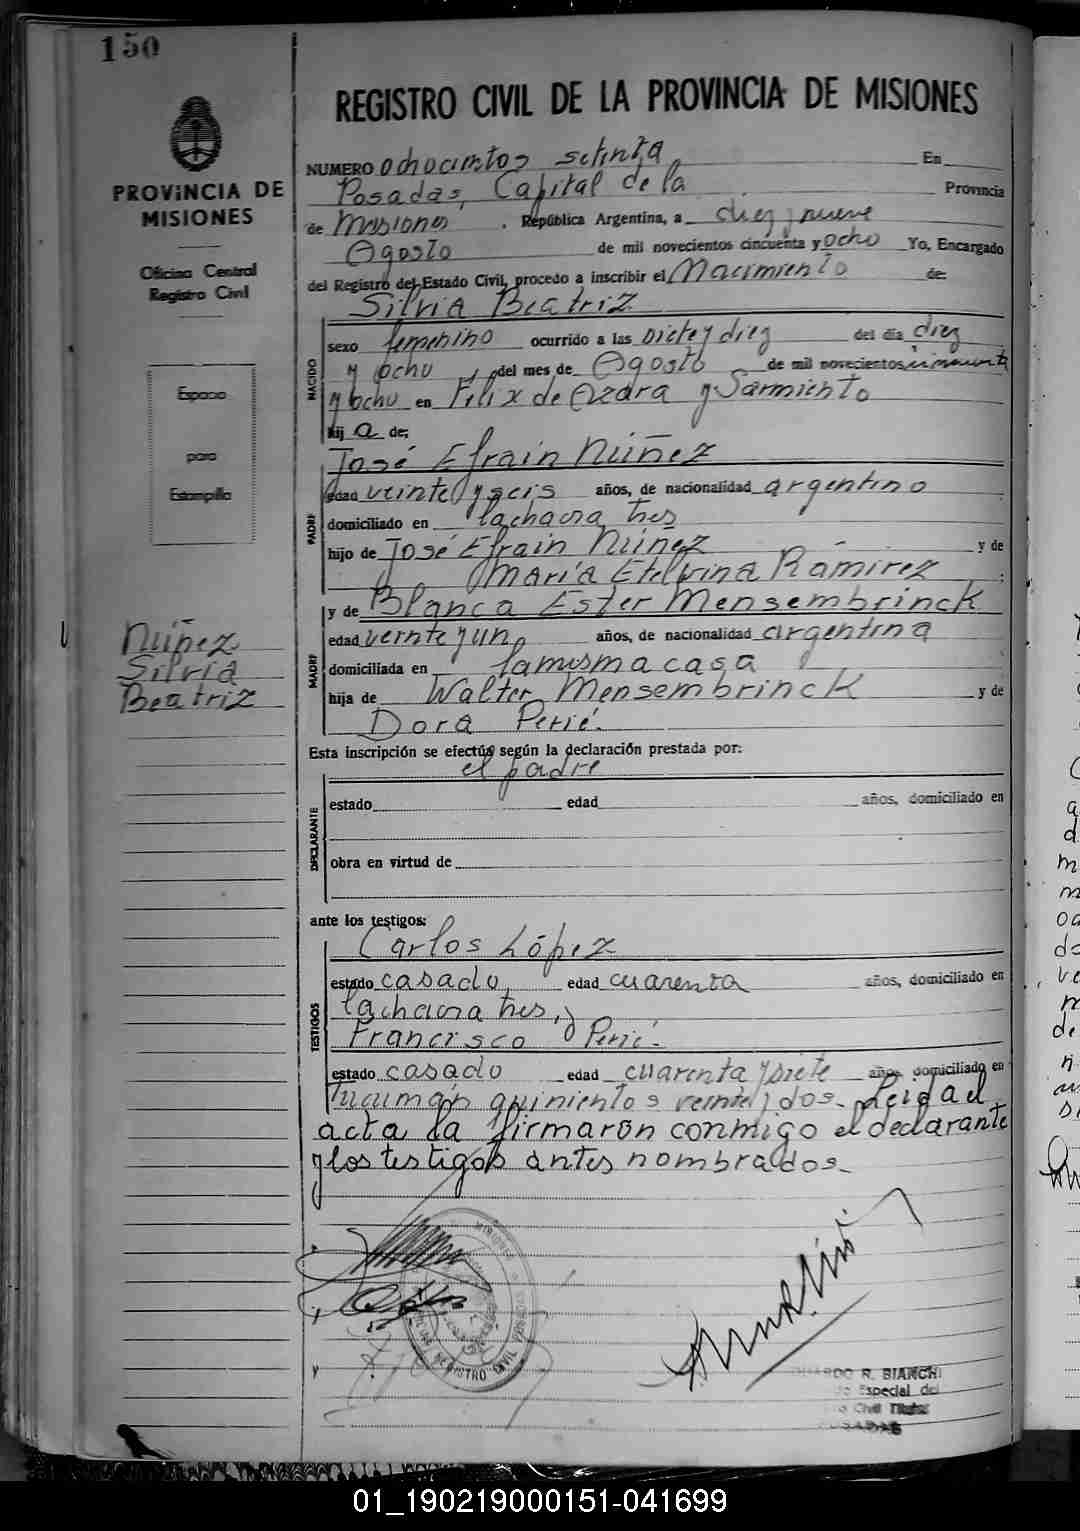 150
PROVINCIA DE
MISIONES
Oficina Central
Registro Civil
Espacio
para
Estampilla
Núñez
Silvia
Beatriz
REGISTRO CIVIL DE LA PROVINCIA DE MISIONES
NUMERO ochocientos setenta En
Posadas, Capital de la Provincia
de Misiones, República Argentina, a diez y nueve
Agosto de mil novecientos cincuenta y ocho Yo, Encargado
del Registro del Estado Civil, procedo a inscribir el Nacimiento de:
Silvia Beatriz
NACIDO
sexo femenino ocurrido a las siete y diez del día diez
y ocho, del mes de Agosto de mil novecientos cincuenta
y ocho en Félix de Azara y Sarmiento
hij a de:
José Efrain Núñez
PADRE
edad veinte y seis años, de nacionalidad argentino
domiciliado en la chacra tres
hijo de José Efrain Núñez y de
María Etelvina Ramírez
y de Blanca Ester Mensembrinck
MADRE
edad veinte y un años, de nacionalidad argentina
domiciliada en la misma casa
hija de Walter Mensembrinck y de
Dora Perié.
Esta inscripción se efectúa según la declaración prestada por:
el padre
DECLARANTE
estado edad años, domiciliado en
obra en virtud de
ante los testigos:
Carlos López
TESTIGOS
estado casado, edad cuarenta años, domiciliado en
la chacra tres, y
Francisco Perié.
estado casado edad cuarenta y siete años, domiciliado en
Tucumán quinientos veinte y dos. Leida el
acta la firmaron conmigo el declarante
y los testigos antes nombrados.
REGISTRO CIVIL
R. BIANCHI
Especial del
Civil Titular
POSADAS
01_190219000151-041699